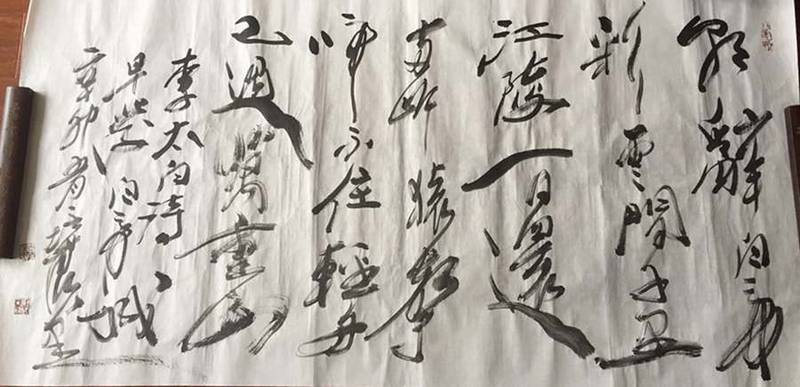 朝辭白帝
彩雲間千里
江陵一日還
兩岸猿聲
啼不住輕舟
已過萬重山
李太白詩
早發白帝城
辛卯